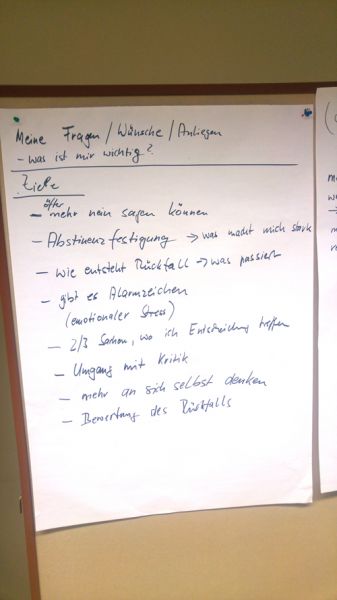 Meine Fragen / Wünsche / Anliegen
- was ist mir wichtig?
Ziele
öfter
- mehr nein sagen können
- Abstinenzfestigung → was macht mich stark
- wie entsteht Rückfall → was passiert
- gibt es Alarmzeichen
(emotionaler Stress)
- 2/3 Sachen, wo ich Entscheidung treffen
- Umgang mit Kritik
- mehr an sich selbst denken
- Bewertung des Rückfalls